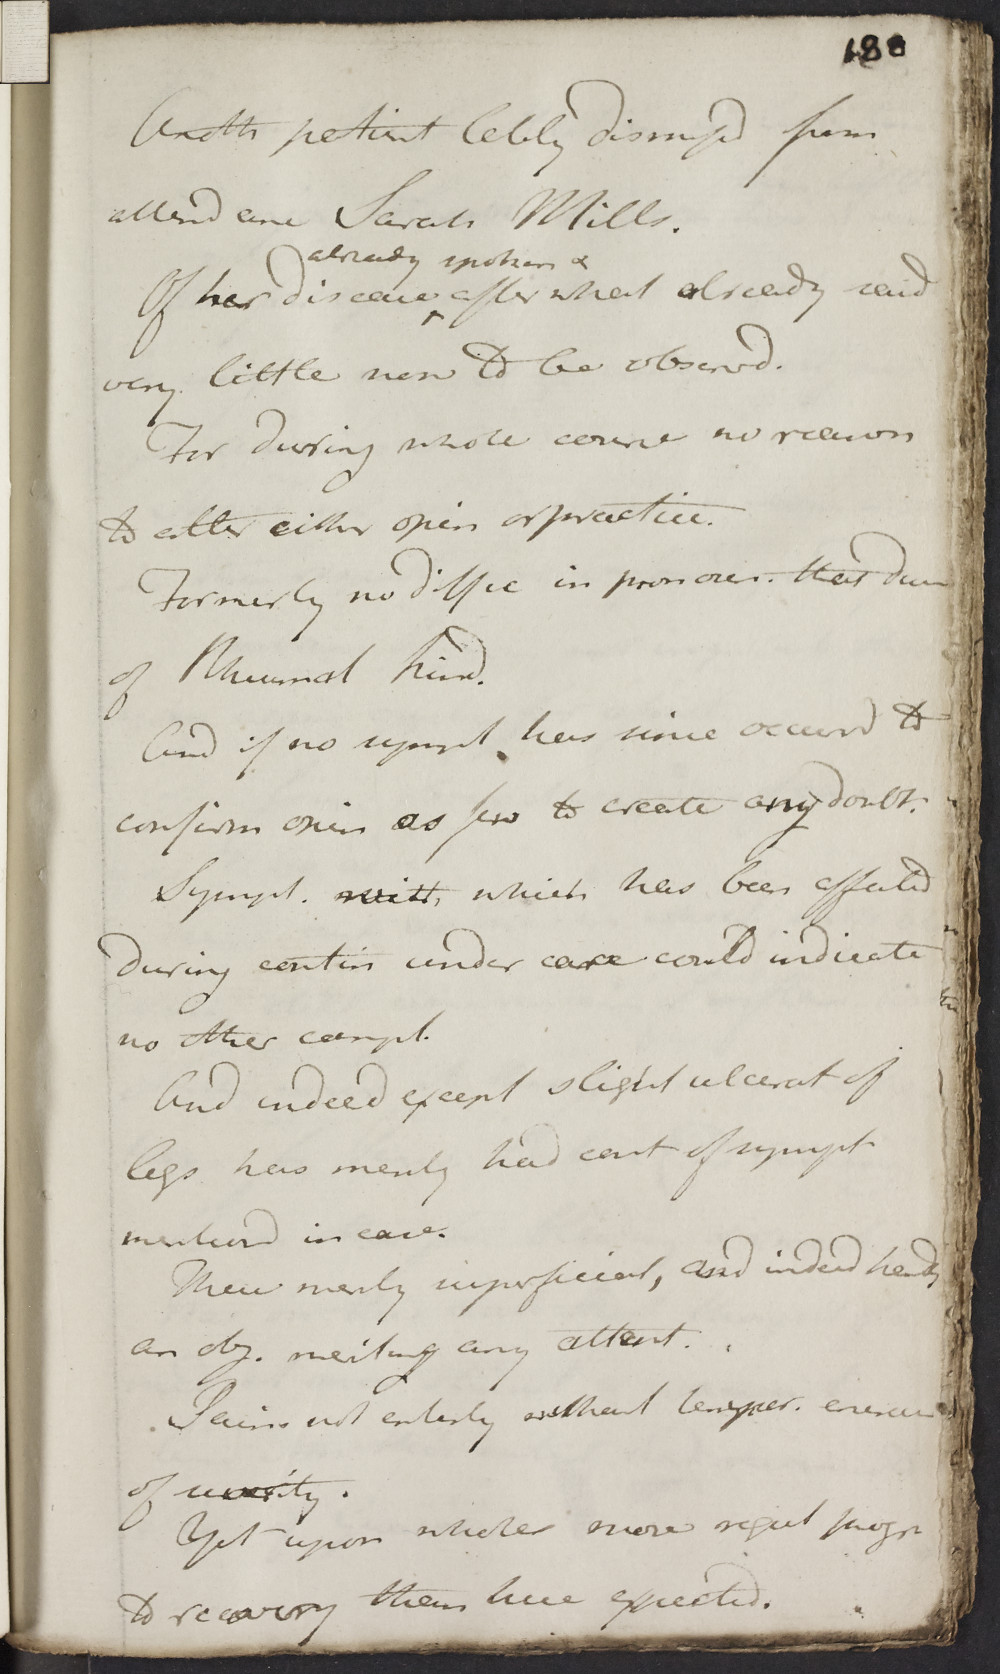 188
Anoth patient lately dismisd from
attendance Sarah Mills.
already spoken &
Of her disease after what already said
very little now to be observd.
For during whole course no reason
to alter either opin or practice.
Formerly no diffic in pronoun. that
of Rheumat kind.
And if no sympt has since occurrd to
confirm opin as few to create any doubt.
Sympt. with which has been affected
during contin under care could indicate
no other compl.
And indeed except slight ulcerat of
legs has merely had cont of sympt
mentiond in case.
These merly superficial, and indeed hardly
an obj. meriting any attent.
Pains not entirely without temper.
of severity.
Yet upon whole more regul progr
to recovery than here expected.